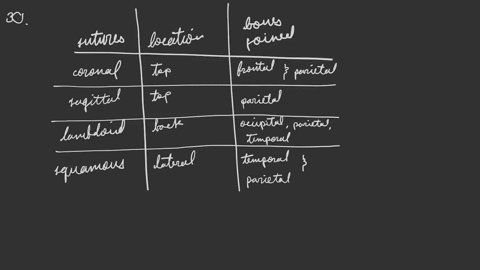 30.
sutures location bones joined
coronal top frontal } parietal
sagittal top parietal
lambdoid back occipital, parietal, temporal
squamous lateral temporal } parietal